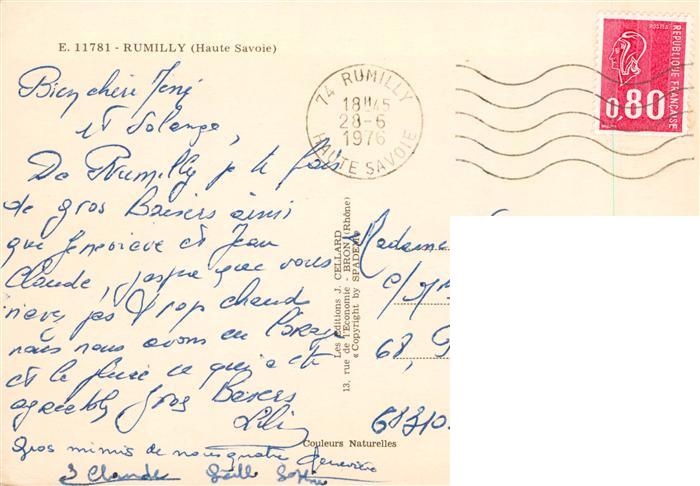 E. 11781 - RUMILLY (Haute Savoie)
74 RUMILLY
18H45
28-6
1976
HAUTE SAVOIE
POSTES
REPUBLIQUE FRANÇAISE
0,80
Bien chère
et Solange,
De Rumilly je te fais
de gros Baisers ainsi
que Geneviève et Jean
Claude, que vous
pas trop chaud
nous nous avons eu
et la pluie ce qui a été
gros Baisers
Lili
Gros mimis de nous quatre Geneviève
J Claude Gaëlle
Les Editions J. CELLARD
13, rue de l'Economie - BRON (Rhône)
« Copyright by SPADEM »
Couleurs Naturelles
Madame
68,
68310